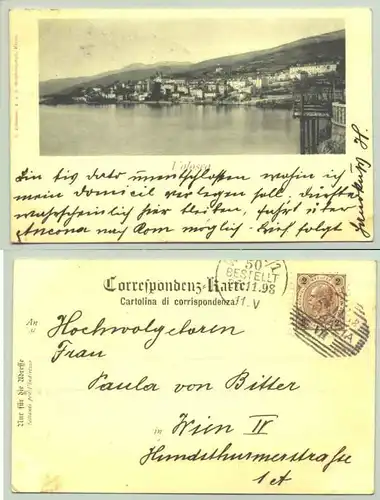 Volosca
Bin bis dato unentschlossen wohin ich
mein Domicil verlegen soll, dürfte
wahrscheinlich hier bleiben, fahrt über
Ancona nach Rom möglich. Brief folgt
H.
50/1
BESTELLT
11.98
11.V
Correspondenz-Karte
Cartolina di corrispondenza
An
Nur für die Adresse
Hochwolgeboren
Frau
Paula von Bitter
in Wien IV
Hundsthurmerstrasse
1A
2
2